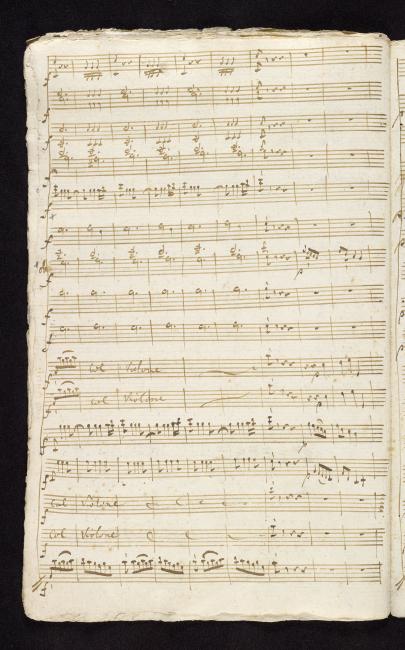 col Violone
col Violone
p
p
col Violone
col Violone